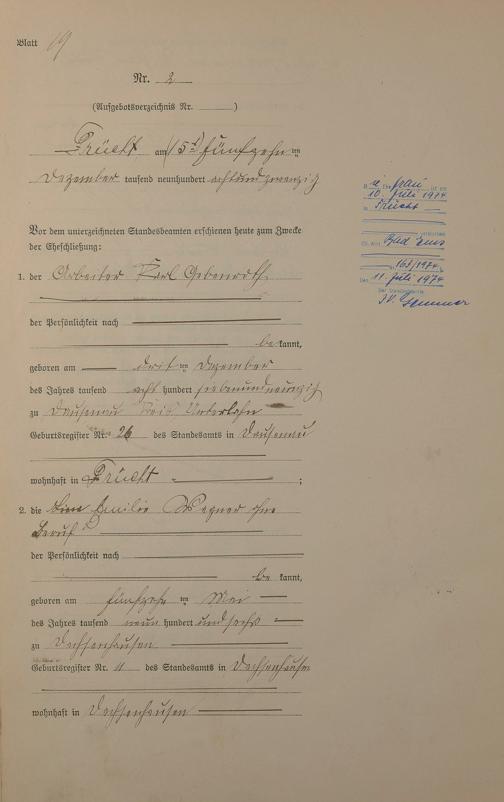 Blatt 19
Nr. 2
(Aufgebotsverzeichnis Nr. )
Frücht am (15t) fünfzehn ten
Dezember tausend neunhundert achtundzwanzig
Vor dem unterzeichneten Standesbeamten erschienen heute zum Zwecke
der Eheschließung:
1. der Arbeiter Karl
der Persönlichkeit nach
be kannt,
geboren am drit ten Dezember
des Jahres tausend acht hundert siebenundneunzig
zu Dausenau Kreis Unterlahn
Geburtsregister Nr. 26 des Standesamts in Dausenau
wohnhaft in Frücht ;
2. die Emilie Wagner ohne
Beruf
der Persönlichkeit nach
be kannt,
geboren am fünfzehn ten Mai
des Jahres tausend neun hundert und sechs
zu Dachsenhausen
Geburtsregister Nr. 11 des Standesamts in Dachsenhausen
wohnhaft in Dachsenhausen
Frau
10. Juli 1974
Frücht
Bad Ems
167/1974
11. Juli 1974